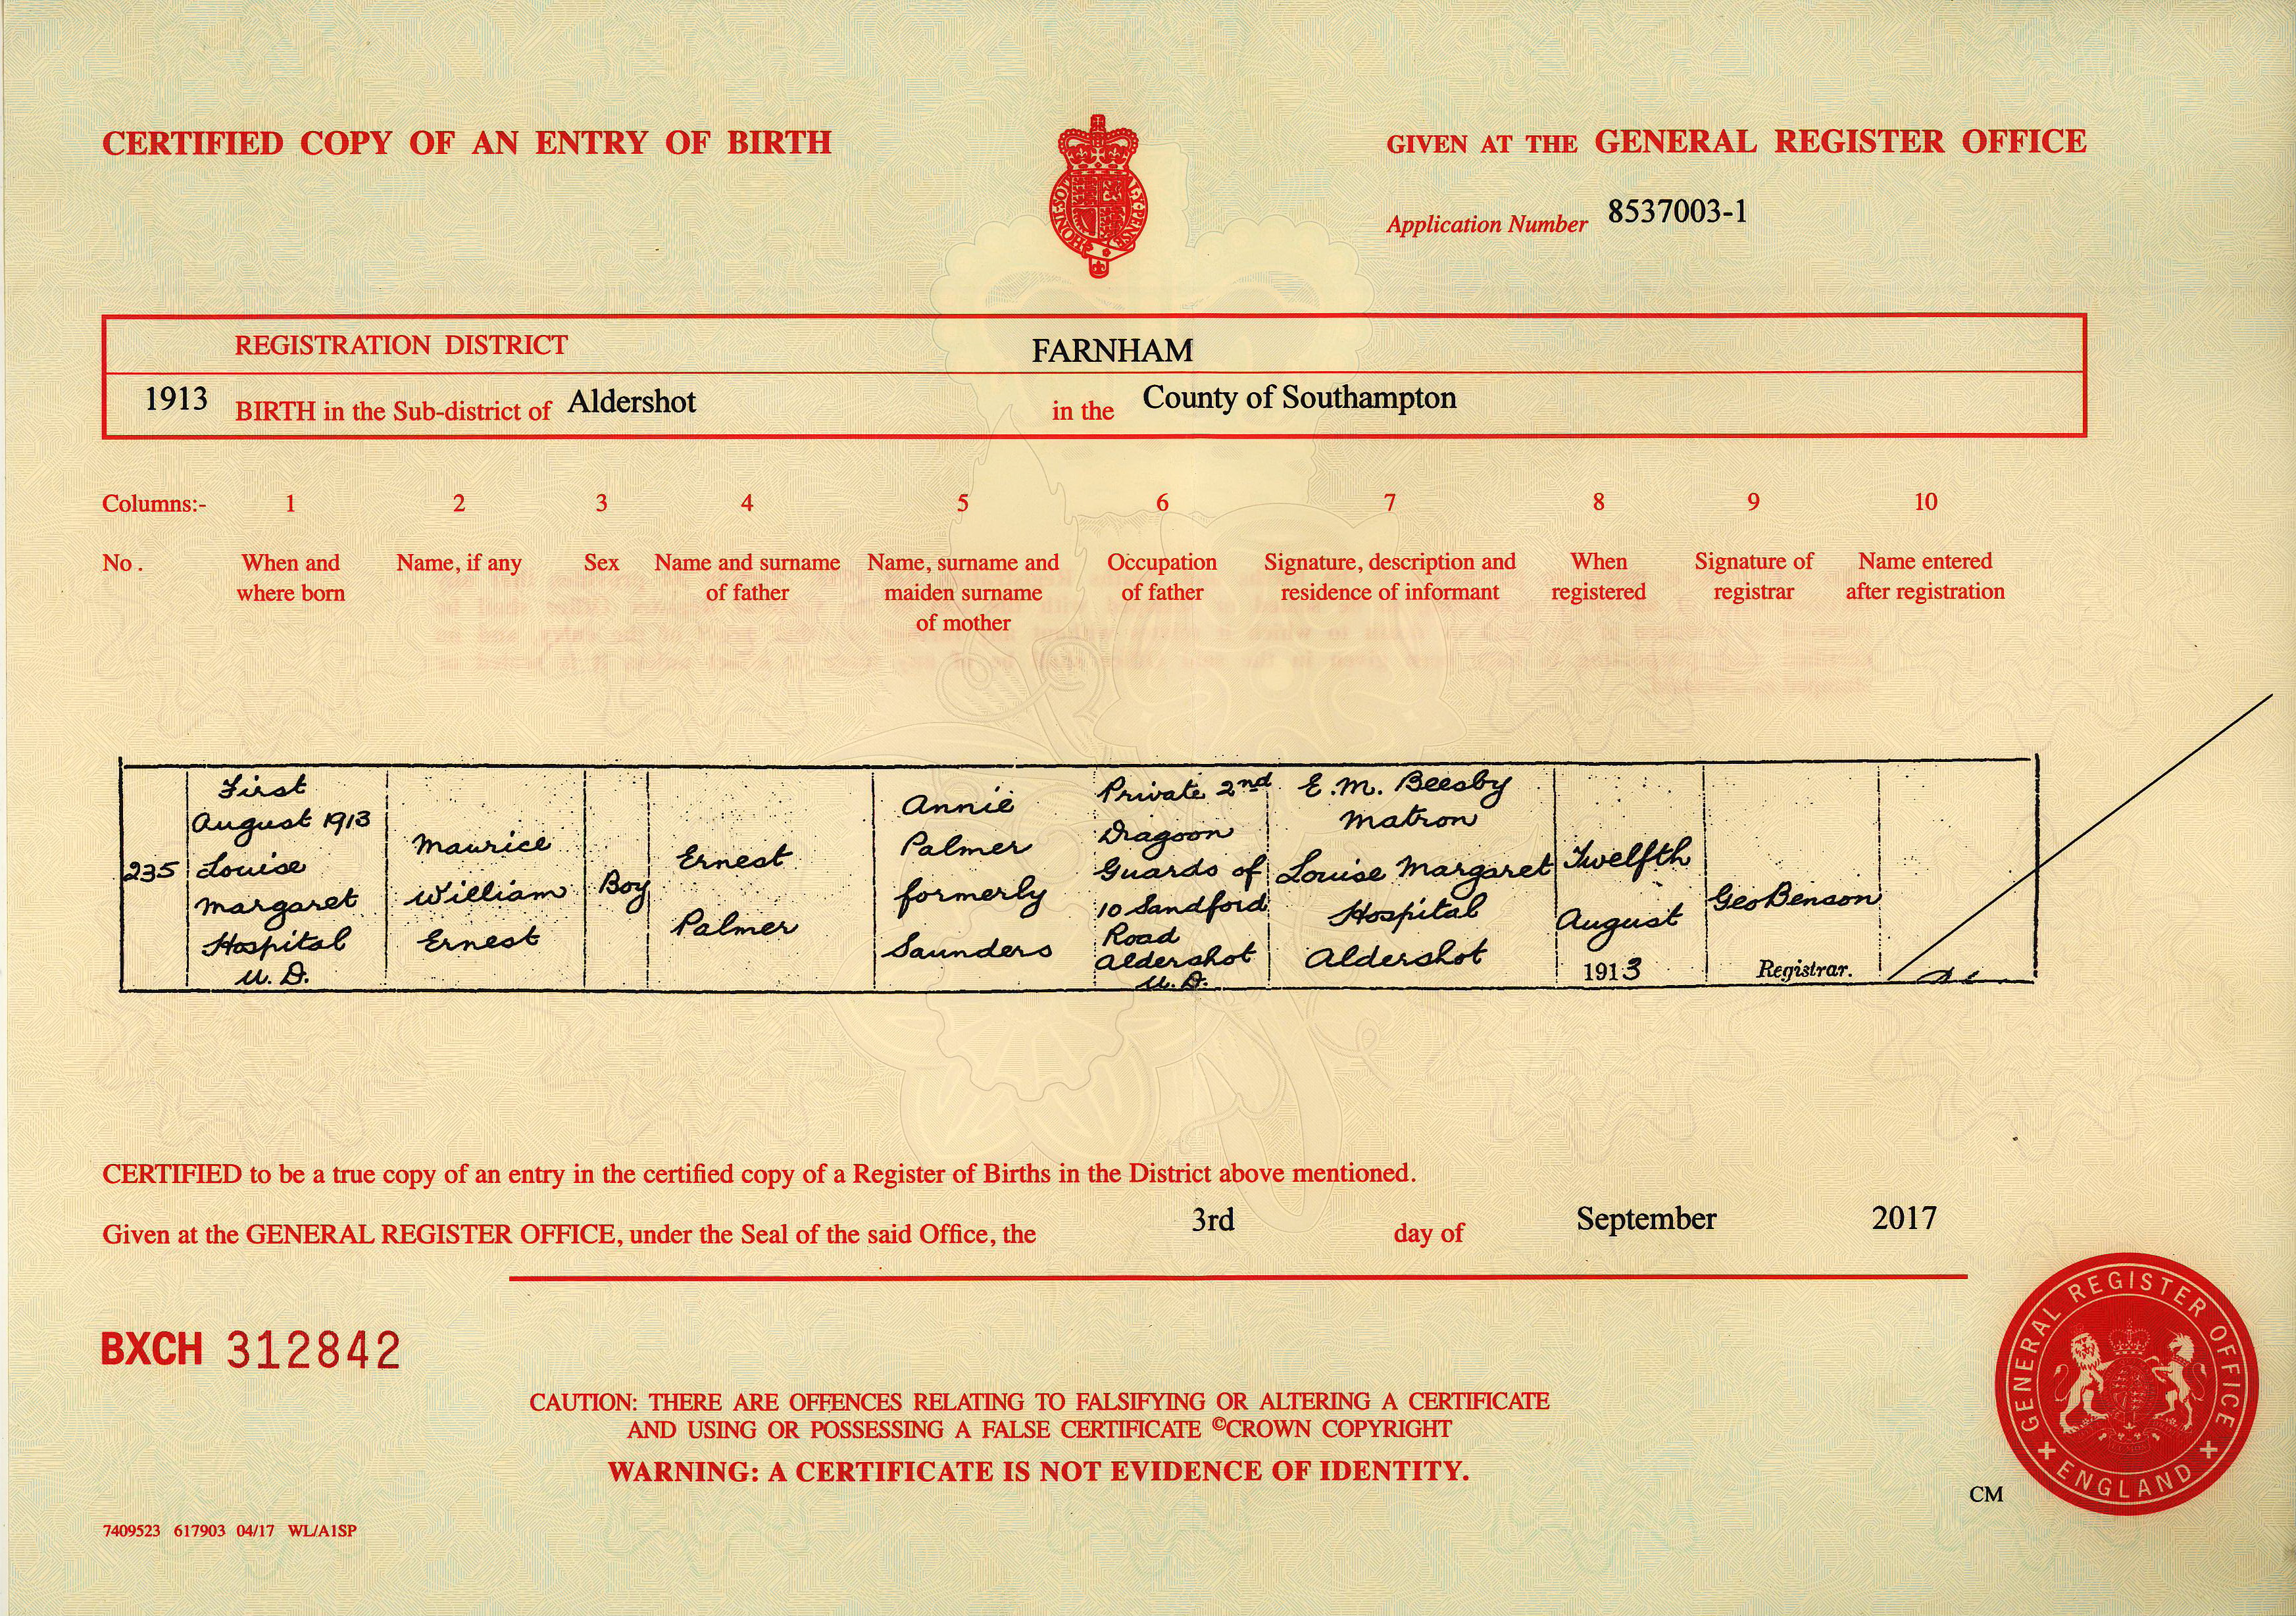 CERTIFIED COPY OF AN ENTRY OF BIRTH
GIVEN AT THE GENERAL REGISTER OFFICE
HONI·SOIT
MAL·Y·PENSE
Application Number 8537003-1
REGISTRATION DISTRICT FARNHAM
1913 BIRTH in the Sub-district of Aldershot in the County of Southampton
Columns:- 1 2 3 4 5 6 7 8 9 10
No. When and where born
Name, if any
Sex
Name and surname of father
Name, surname and maiden surname of mother
Occupation of father
Signature, description and residence of informant
When registered
Signature of registrar
Name entered after registration
235
First
August 1913
Louise
Margaret
Hospital
U. D.
Maurice
William
Ernest
Boy
Ernest
Palmer
Annie
Palmer
formerly
Saunders
Private 2nd
Dragoon
Guards of
10 Sandford
Road
Aldershot
U. D.
E. M. Beesby
Matron
Louise Margaret
Hospital
Aldershot
Twelfth
August
1913
Geo Benson
Registrar.
CERTIFIED to be a true copy of an entry in the certified copy of a Register of Births in the District above mentioned.
Given at the GENERAL REGISTER OFFICE, under the Seal of the said Office, the 3rd day of September 2017
BXCH 312842
CAUTION: THERE ARE OFFENCES RELATING TO FALSIFYING OR ALTERING A CERTIFICATE
AND USING OR POSSESSING A FALSE CERTIFICATE ©CROWN COPYRIGHT
WARNING: A CERTIFICATE IS NOT EVIDENCE OF IDENTITY.
GENERAL REGISTER OFFICE
ENGLAND
CM
7409523 617903 04/17 WL/A1SP